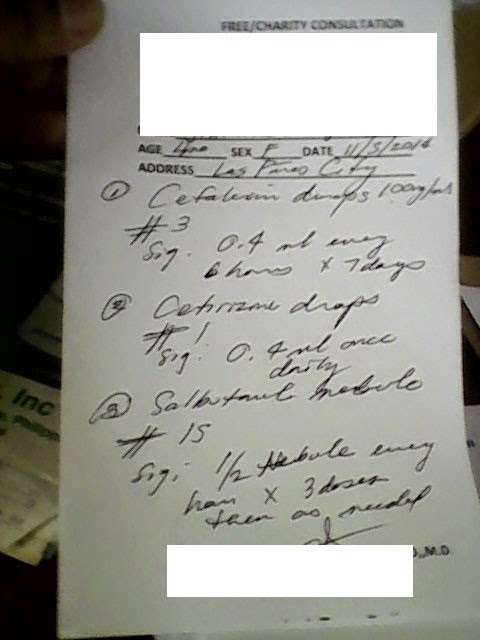 FREE/CHARITY CONSULTATION
AGE SEX F DATE 11/5/2014
ADDRESS Las Pinas City
① Cefalexin drops 100mg/ml
# 3
Sig. 0.4 ml every
6 hours x 7 days
② Cetirizine drops
# 1
Sig: 0.4 ml once
daily
③ Salbutamol nebule
# 15
Sig; 1/2 Nebule every
hour x 3 doses
then as needed
M.D.
Inc